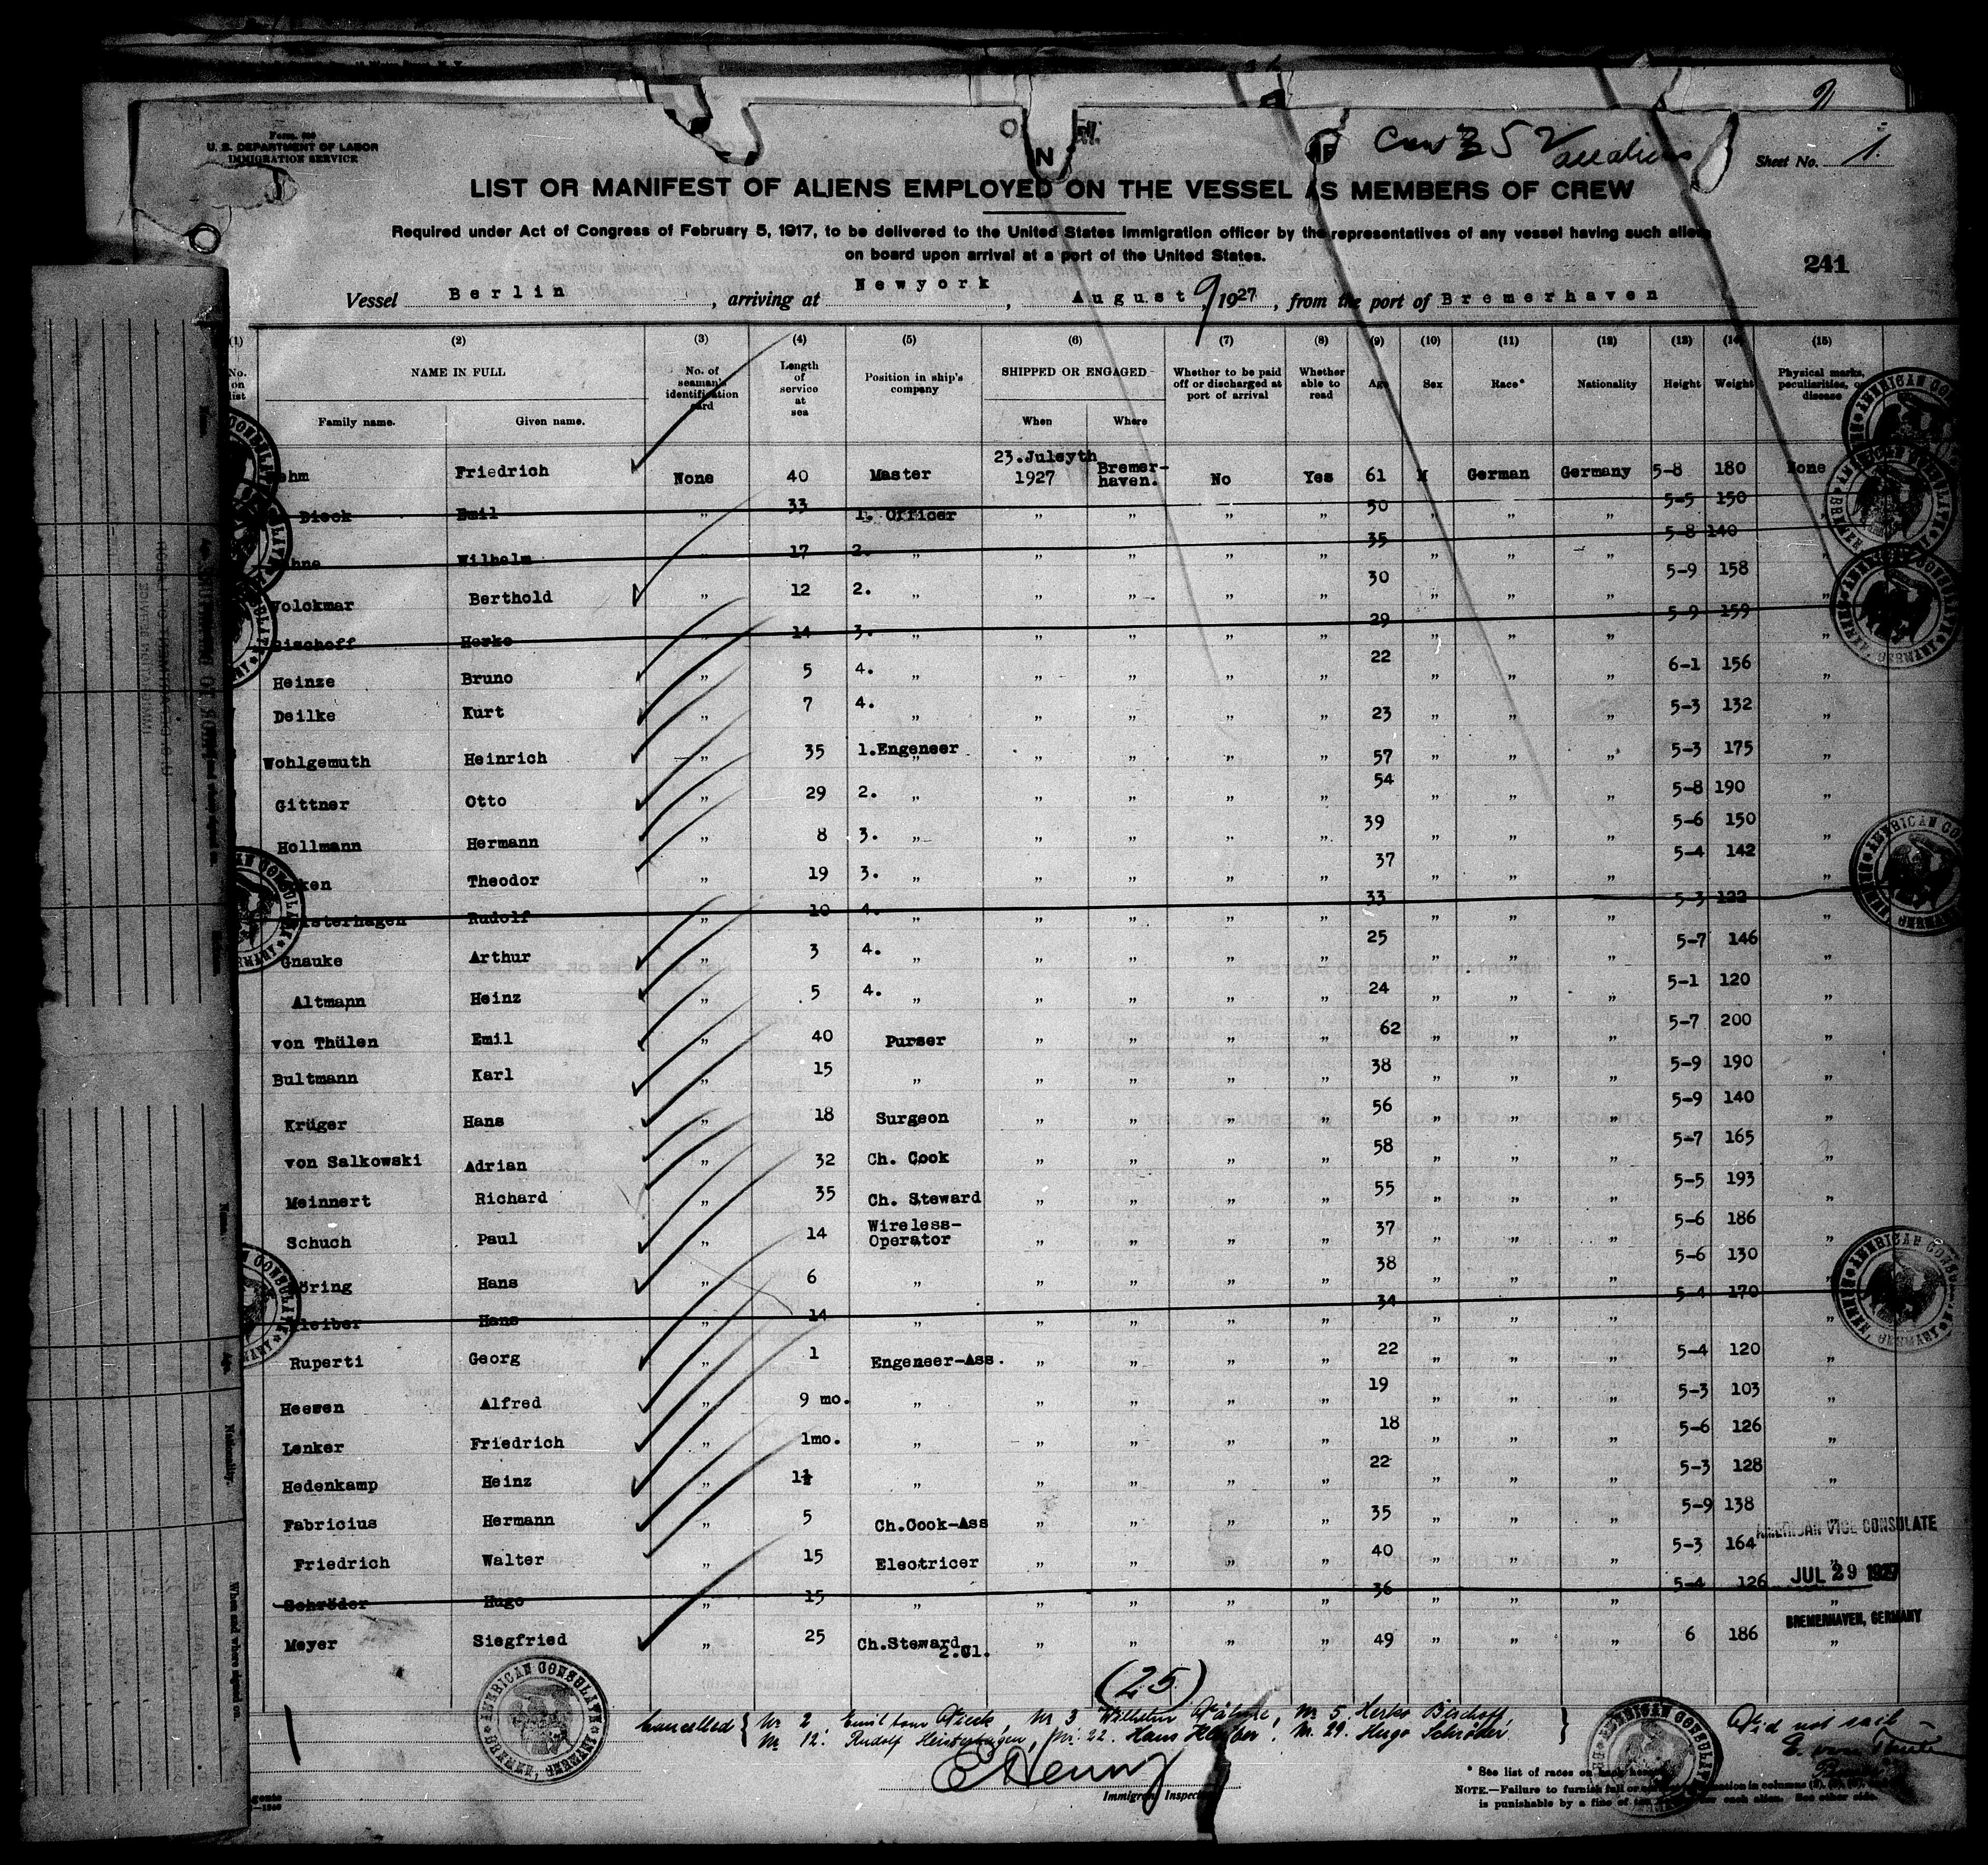 Form 680
U. S. DEPARTMENT OF LABOR
IMMIGRATION SERVICE
Crew 352
all aliens
Sheet No. 1.
LIST OR MANIFEST OF ALIENS EMPLOYED ON THE VESSEL AS MEMBERS OF CREW
Required under Act of Congress of February 5, 1917, to be delivered to the United States immigration officer by the representatives of any vessel having such aliens
on board upon arrival at a port of the United States.
241
Vessel Berlin, arriving at Newyork, August 9 1927, from the port of Bremerhaven
(1) (2) (3) (4) (5) (6) (7) (8) (9) (10) (11) (12) (13) (14) (15)
No. on list NAME IN FULL No. of seaman's identification card Length of service at sea Position in ship's company SHIPPED OR ENGAGED Whether to be paid off or discharged at port of arrival Whether able to read Age Sex Race* Nationality Height Weight Physical marks, peculiarities, or disease
Family name. Given name. When Where
Friedrich None 40 Master 23.Juleyth 1927 Bremer-haven. No Yes 61 M German Germany 5-8 180 None
Dieck Emil „ 33 1. Officer „ „ „ „ 50 „ „ „ 5-5 150 „
Wilhelm „ 17 2. „ „ „ „ „ 35 „ „ „ 5-8 140 „
Volckmar Berthold „ 12 2. „ „ „ „ „ 30 „ „ „ 5-9 158 „
Bischoff Herko „ 14 3. „ „ „ „ „ 29 „ „ „ 5-9 159 „
Heinze Bruno „ 5 4. „ „ „ „ „ 22 „ „ „ 6-1 156 „
Deilke Kurt „ 7 4. „ „ „ „ „ 23 „ „ „ 5-3 132 „
Wohlgemuth Heinrich „ 35 1.Engeneer „ „ „ „ 57 „ „ „ 5-3 175 „
Gittner Otto „ 29 2. „ „ „ „ „ 54 „ „ „ 5-8 190 „
Hollmann Hermann „ 8 3. „ „ „ „ „ 39 „ „ „ 5-6 150 „
Theodor „ 19 3. „ „ „ „ „ 37 „ „ „ 5-4 142 „
Rudolf „ 10 4. „ „ „ „ „ 33 „ „ „ 5-3 122 „
Gnauke Arthur „ 3 4. „ „ „ „ „ 25 „ „ „ 5-7 146 „
Altmann Heinz „ 5 4. „ „ „ „ „ 24 „ „ „ 5-1 120 „
von Thülen Emil „ 40 Purser „ „ „ „ 62 „ „ „ 5-7 200 „
Bultmann Karl „ 15 „ „ „ „ „ 38 „ „ „ 5-9 190 „
Krüger Hans „ 18 Surgeon „ „ „ „ 56 „ „ „ 5-9 140 „
von Salkowski Adrian „ 32 Ch. Cook „ „ „ „ 58 „ „ „ 5-7 165 „
Meinnert Richard „ 35 Ch. Steward „ „ „ „ 55 „ „ „ 5-5 193 „
Schuch Paul „ 14 Wireless-Operator „ „ „ „ 37 „ „ „ 5-6 186 „
Hans „ 6 „ „ „ „ „ 38 „ „ „ 5-6 130 „
Hans „ 14 „ „ „ „ „ 34 „ „ „ 5-4 170 „
Ruperti Georg „ 1 Engeneer-Ass. „ „ „ „ 22 „ „ „ 5-4 120 „
Heesen Alfred „ 9 mo. „ „ „ „ „ 19 „ „ „ 5-3 103 „
Lenker Friedrich „ 1mo. „ „ „ „ „ 18 „ „ „ 5-6 126 „
Hedenkamp Heinz „ 1½ „ „ „ „ „ 22 „ „ „ 5-3 128 „
Fabricius Hermann „ 5 Ch.Cook-Ass „ „ „ „ 35 „ „ „ 5-9 138 „
Friedrich Walter „ 15 Electricer „ „ „ „ 40 „ „ „ 5-3 164 „
Schröder Hugo „ 15 „ „ „ „ „ 36 „ „ „ 5-4 126 „
Meyer Siegfried „ 25 Ch.Steward 2.Cl. „ „ „ „ 49 „ „ „ 6 186 „
AMERICAN VICE CONSULATE
JUL 29 1927
BREMERHAVEN, GERMANY
AMERICAN CONSULATE
(25)
Cancelled { Nr 2 Emil tom Dieck Nr 3 Wilhelm, Nr 5. Herko Bischoff,
Nr 12. Rudolf Heisterhagen, Nr. 22. Hans Kleiber, Nr. 29. Hugo Schröder. }
Did not sail
Immigrant Inspector
* See list of races on back hereof.
NOTE.—Failure to furnish full or information in columns
is punishable by a fine of for each alien. See other side.